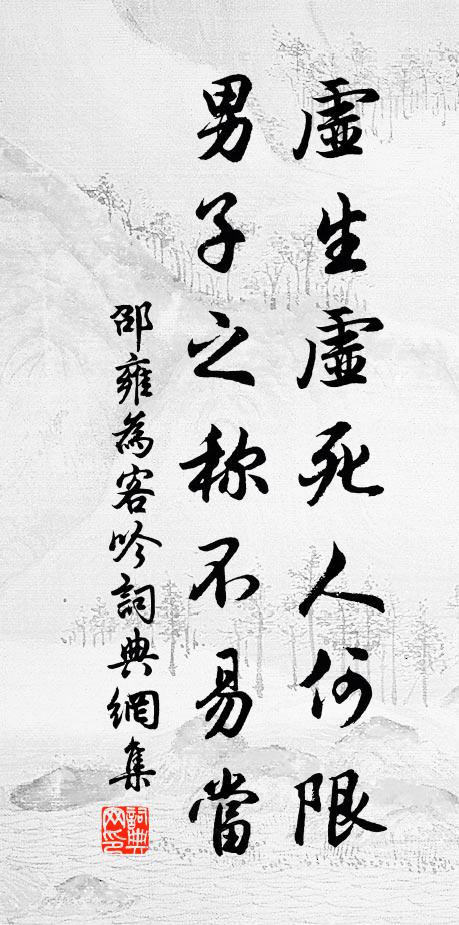 虛生虛死人何限
男子之称不易當
邵雍為客吟詞典網集
詞典網印